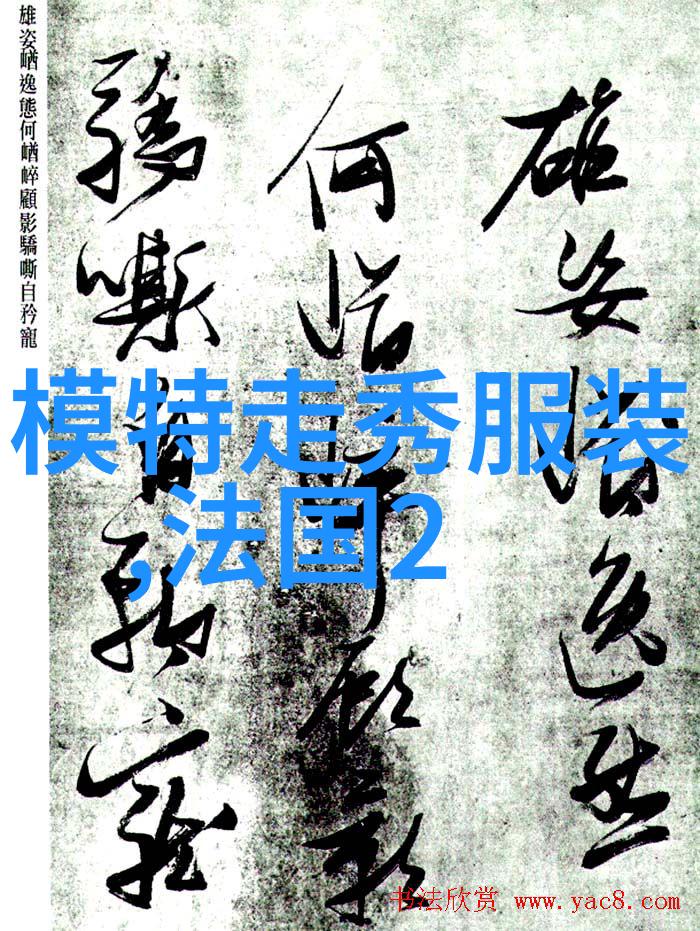 雄姿崷逸態
何崷崪顧影
驕嘶自矜寵
雄姿崷逸態何崷崪顧影驕嘶自矜寵
模特走秀服装
,法国2
书法欣赏 www.yac8.com